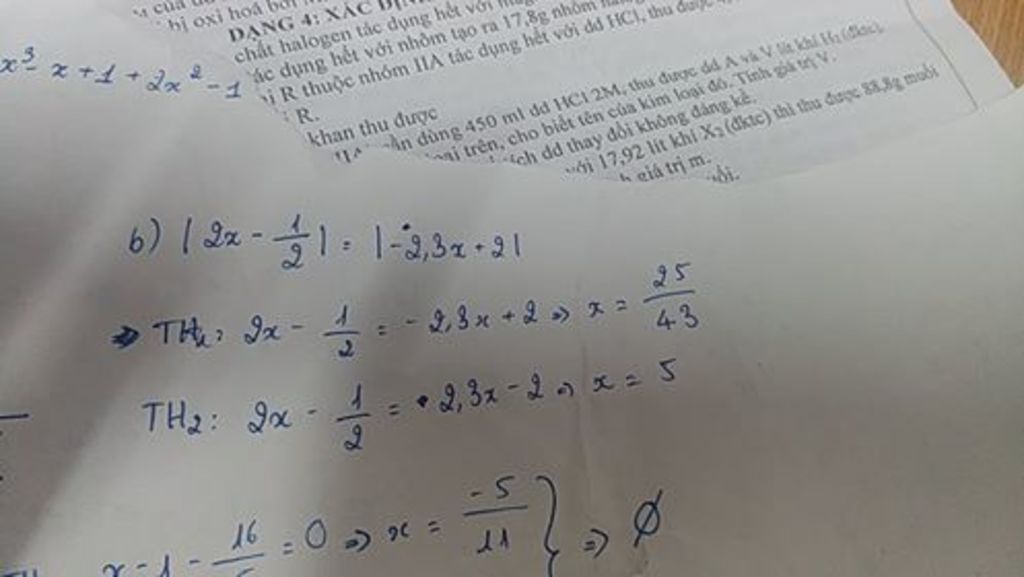 của
bị oxi hoá bởi
DẠNG 4: XÁC
chất halogen tác dụng hết với
ác dụng hết với nhôm tạo ra 17,8g nhôm
R thuộc nhóm IIA tác dụng hết với dd HCl, thu được
R.
khan thu được
IIA cần dùng 450 ml dd HCl 2M, thu được dd A và V lít khí H₂ (đktc).
loại trên, cho biết tên của kim loại đó. Tính giá trị V.
ích dd thay đổi không đáng kể.
với 17,92 lít khí X₂ (đktc) thì thu được 88,8g muối
giá trị m.
x³ - x + 1 + 2x² - 1
b) |2x - 1/2| = |-2,3x + 2|
=> TH₁: 2x - 1/2 = -2,3x + 2 => x = 25/43
TH₂: 2x - 1/2 = 2,3x - 2 => x = 5
x - 1 - 16/ = 0 => x = -5/11 } => ∅